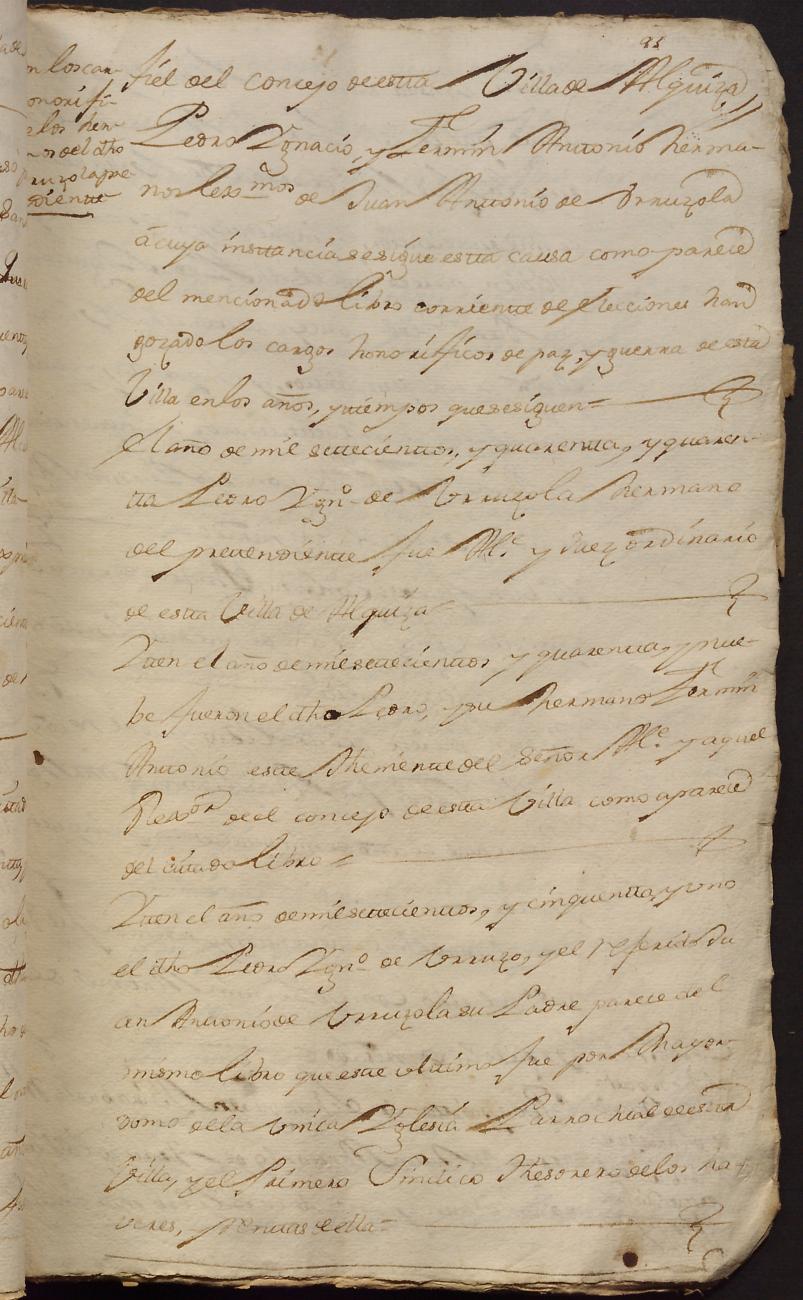 91
fiel del concejo de estta Villa de Alquiza
Pedro Ygnacio, y Fermin Antonio herma-
nos lexmos de Juan Antonio de Urruzola
á cuya insttancia se sigue estta causa como parece
del mencionado libro corriente de elecciones han
gozado los cargos honorificos de paz, y guerra de esta
Villa en los años, y tiempos que se siguen =
El año de mil settecienttos, y quarentta, y quaren-
tta Pedro Ygno. de Urruzola hermano
del prettendientte fue Alce. y Juez ordinario
de estta Villa de Alquiza =
Ytten el año de mil settecienttos y quarentta, y nue-
be fueron el dho Pedro, y su hermano Fermin
Antonio estte Thenientte del Señor Alce. y aquel
Rexor. de el concejo de estta Villa como aparece
del cittado libro =
Ytten el año de mil settecienttos, y cinquentta, y uno
el dho Pedro Ygno. de Urruzo, y el referido Ju
an Antonio de Urruzola su Padre parece del
mismo libro que estte ulttimo fue por Mayor-
domo de la unica Yglesia Parrochial de estta
Villa, y el Primero Sindico Thesorero de los ha-
veres, y renttas de ella =
n los car-
onorifi-
los her-
nos del dho
rruzola pre-
dientte